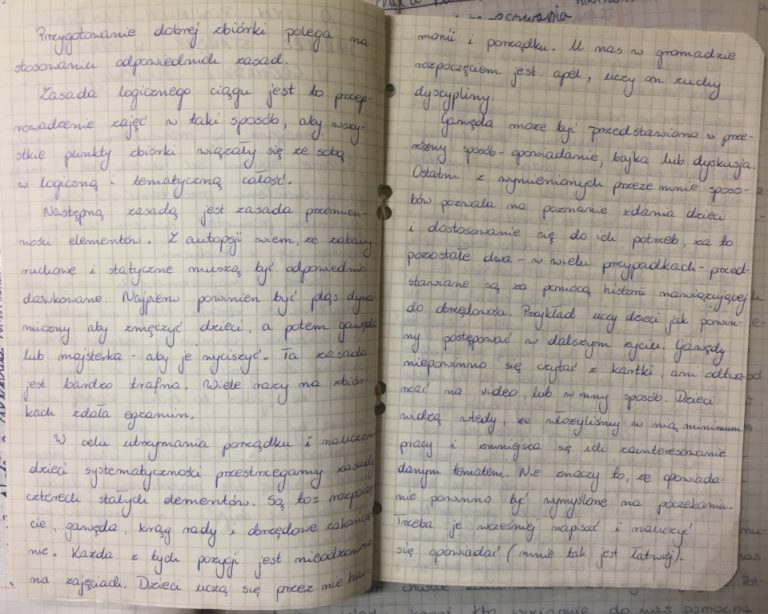 Przygotowanie dobrej zbiórki polega na
stosowaniu odpowiednich zasad.
Zasada logicznego ciągu jest to przep-
rowadzenie zajęć w taki sposób, aby wszy-
stkie punkty zbiórki wiązały się ze sobą
w logiczną i tematyczną całość.
Następną zasadą jest zasada przemien-
ności elementów. Z autopsji wiem, że zabawy
ruchowe i statyczne muszą być odpowiednio
dawkowane. Najpierw powinien być pląs dyna-
miczny aby zmęczyć dzieci, a potem gawęda
lub majsterka - aby je wyciszyć. Ta zasada
jest bardzo trafna. Wiele razy na zbiór-
kach zdała egzamin.
W celu utrzymania porządku i nauczenia
dzieci systematyczności przestrzegamy zasady
czterech stałych elementów. Są to: rozpoczę-
cie, gawęda, krąg rady i obrzędowe zakończe-
nie. Każda z tych pozycji jest nieodzowna
na zajęciach. Dzieci uczą się przez nie har-
monii i porządku. U nas w gromadzie
rozpoczęciem jest apel, uczy on zuchy
dyscypliny.
Gawęda może być przedstawiona w prze-
różny sposób - opowiadanie, bajka lub dyskusja.
Ostatni z wymienionych przeze mnie sposo-
bów pozwala na poznanie zdania dzieci
i dostosowanie się do ich potrzeb, za to
pozostałe dwa - w wielu przypadkach - przed-
stawiane są za pomocą historii nawiązującej
do obrzędowości. Przykład uczy dzieci jak powin-
ny postępować w dalszym życiu. Gawędy
niepowinno się czytać z kartki, ani odtwa-
rzać na video, lub w inny sposób. Dzieci
widzą wtedy, że włożyliśmy w nią minimum
pracy i zmniejsza się ich zainteresowanie
danym tematem. Nie znaczy to, że opowiada-
nie powinno być wymyślone na poczekaniu.
Trzeba je wcześniej napisać i nauczyć
się opowiadać (mnie tak jest łatwiej).